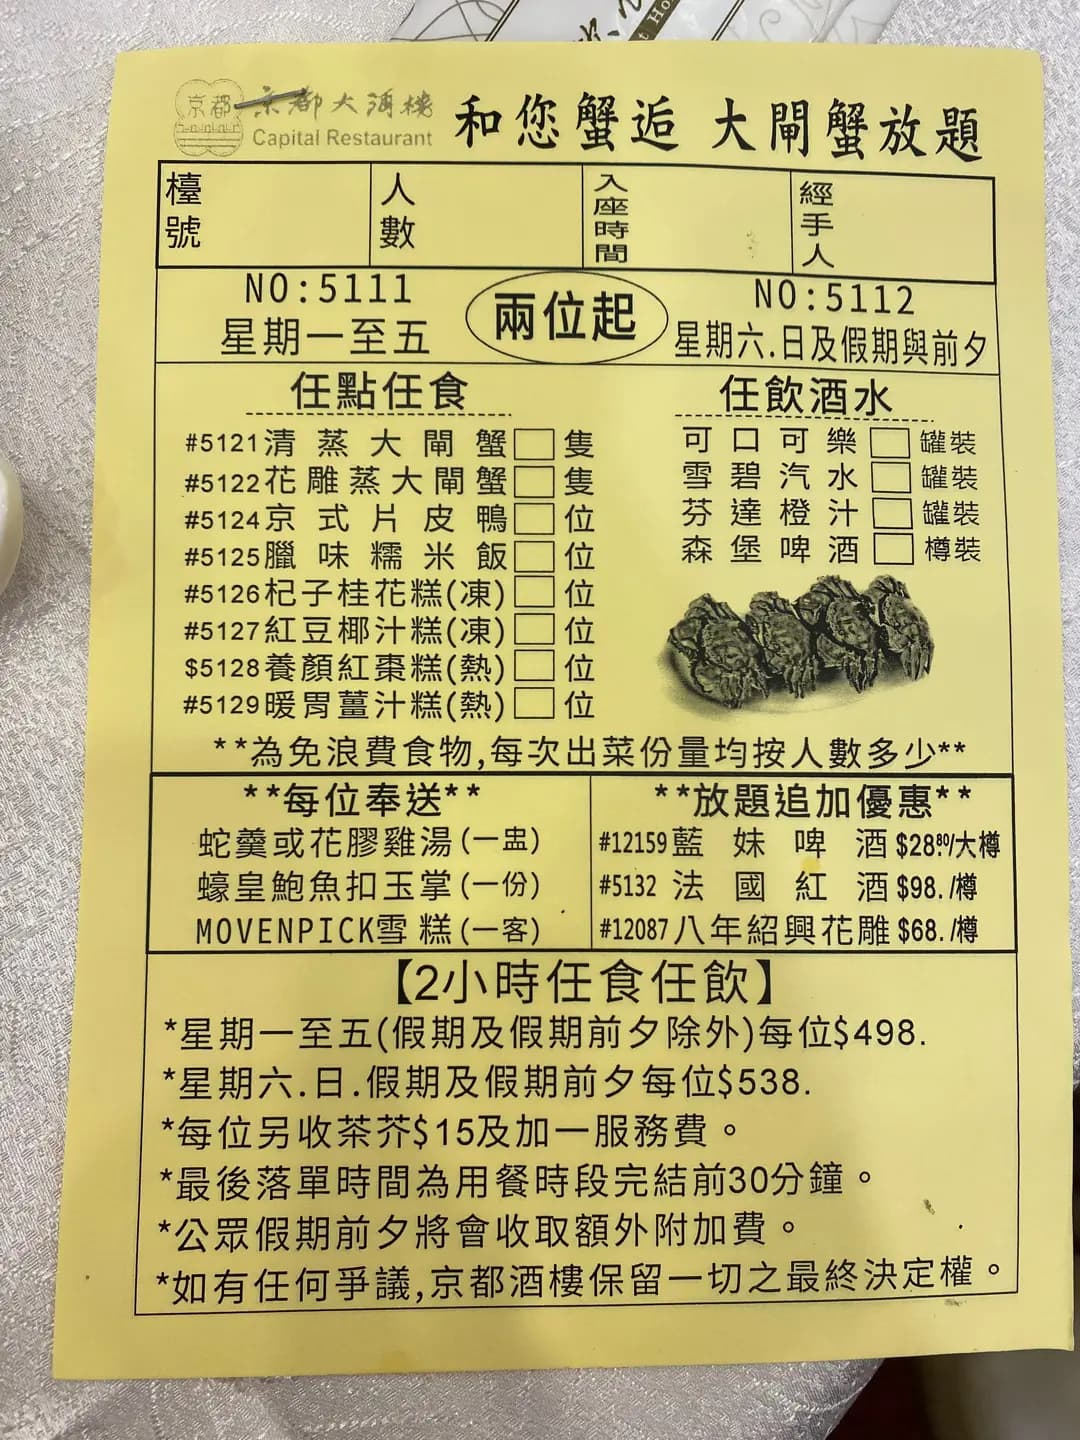 京都 京都大酒樓
Capital Restaurant
和您蟹逅 大閘蟹放題
檯號 人數 入座時間 經手人
NO:5111 兩位起 NO:5112
星期一至五 星期六.日及假期與前夕
任點任食 任飲酒水
#5121清蒸大閘蟹□隻 可口可樂□罐裝
#5122花雕蒸大閘蟹□隻 雪碧汽水□罐裝
#5124京式片皮鴨□位 芬達橙汁□罐裝
#5125臘味糯米飯□位 森堡啤酒□樽裝
#5126杞子桂花糕(凍)□位
#5127紅豆椰汁糕(凍)□位
$5128養顏紅棗糕(熱)□位
#5129暖胃薑汁糕(熱)□位
**為免浪費食物,每次出菜份量均按人數多少**
**每位奉送** **放題追加優惠**
蛇羹或花膠雞湯(一盅) #12159藍妹啤酒$28.80/大樽
蠔皇鮑魚扣玉掌(一份) #5132法國紅酒$98./樽
MOVENPICK雪糕(一客) #12087八年紹興花雕$68./樽
【2小時任食任飲】
*星期一至五(假期及假期前夕除外)每位$498.
*星期六.日.假期及假期前夕每位$538.
*每位另收茶芥$15及加一服務費。
*最後落單時間為用餐時段完結前30分鐘。
*公眾假期前夕將會收取額外附加費。
*如有任何爭議,京都酒樓保留一切之最終決定權。